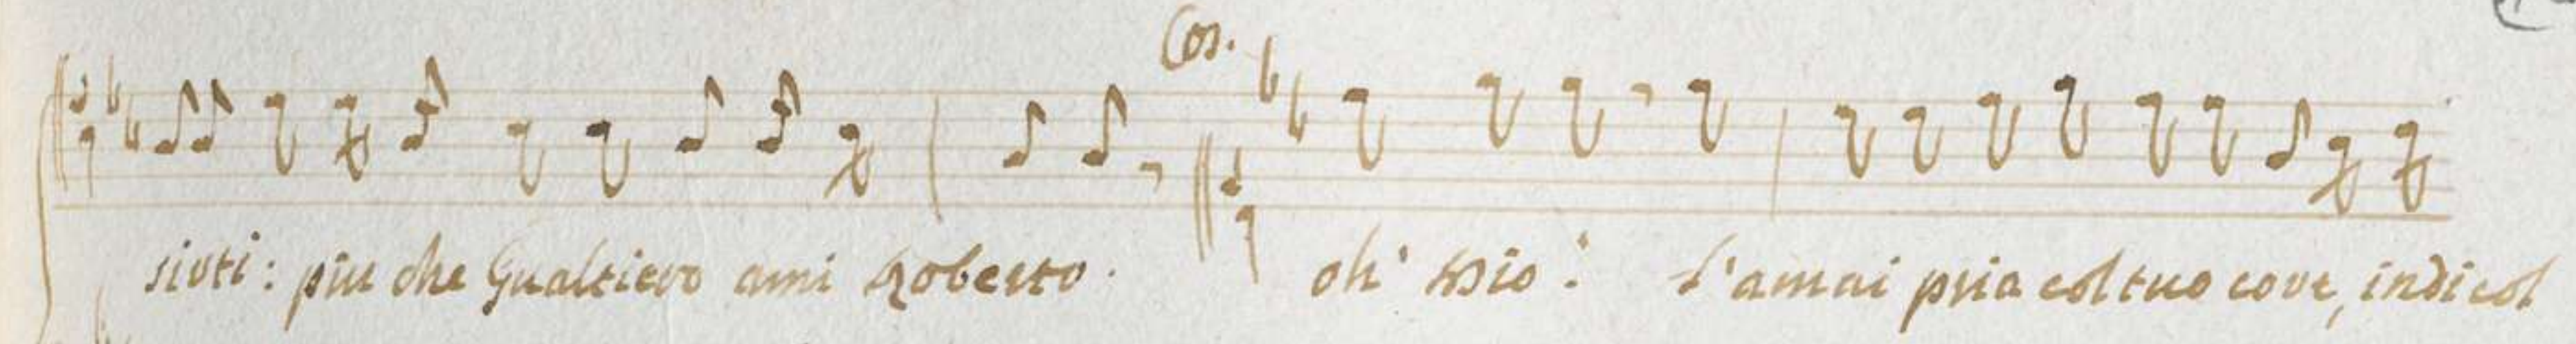 Cos.
sisti: piu che Gualtiero ami Roberto. oh' Dio: L'amai pria col tuo core, indi col